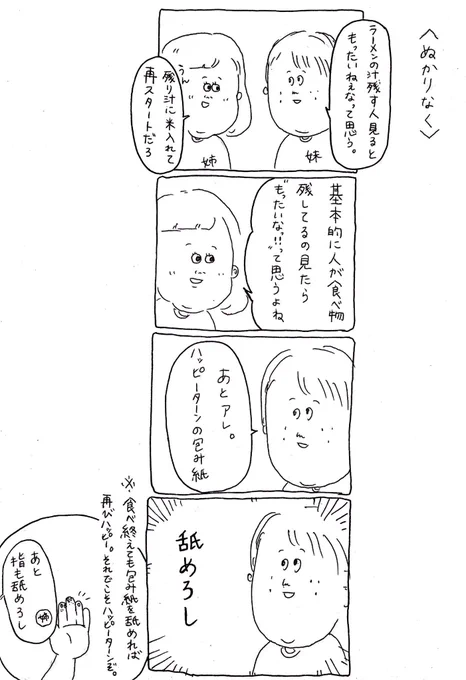 〈ぬかりなく〉
ラーメンの汁残す人見ると
もったいねぇなって思う。
妹
うん
残り汁に米入れて
再スタートだろ
姉
基本的に人が食べ物
残してるの見たら
"もったいなっ!!"って思うよね
あとアレ。
ハッピーターンの包み紙
舐めろし
※食べ終えても包み紙を舐めれば
再びハッピー。それでこそハッピーターンぞ。
あと
指も舐めろし
姉